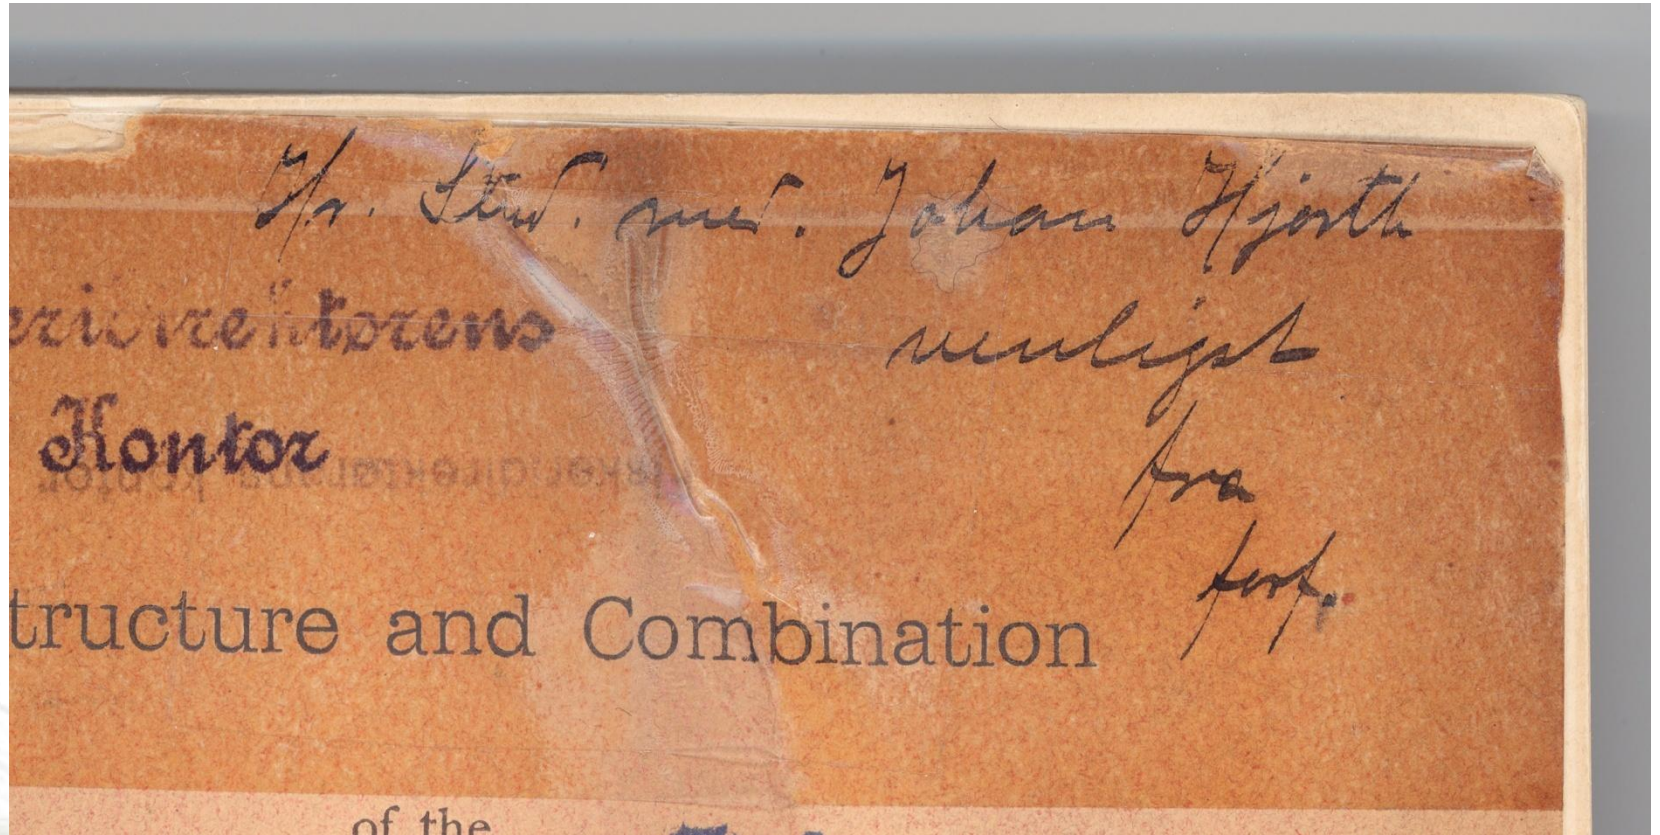 Hr. Stud. med. Johan Hjorth
venligst
fra
forf.
Kontor
tructure and Combination
of the